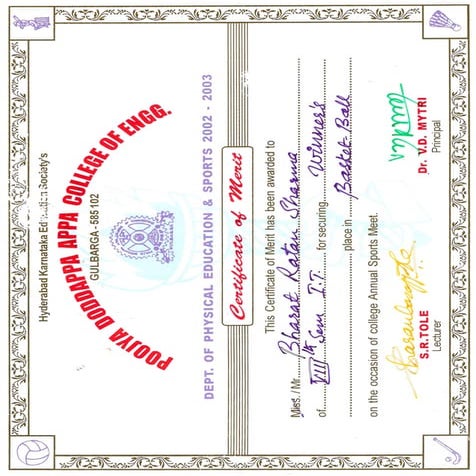 Hyderabad Karnataka Education Society's
POOJYA DODDAPPA APPA COLLEGE OF ENGG.
GULBARGA - 585 102
DEPT. OF PHYSICAL EDUCATION & SPORTS 2002 - 2003
Certificate of Merit
This Certificate of Merit has been awarded to
Miss./Mr. Bharat Ratan Sharma
of VIIIth Sem I.T. for securing Winner's
place in Basket Ball
on the occasion of college Annual Sports Meet.
S.R.TOLE
Lecturer
Dr. V.D. MYTRI
Principal